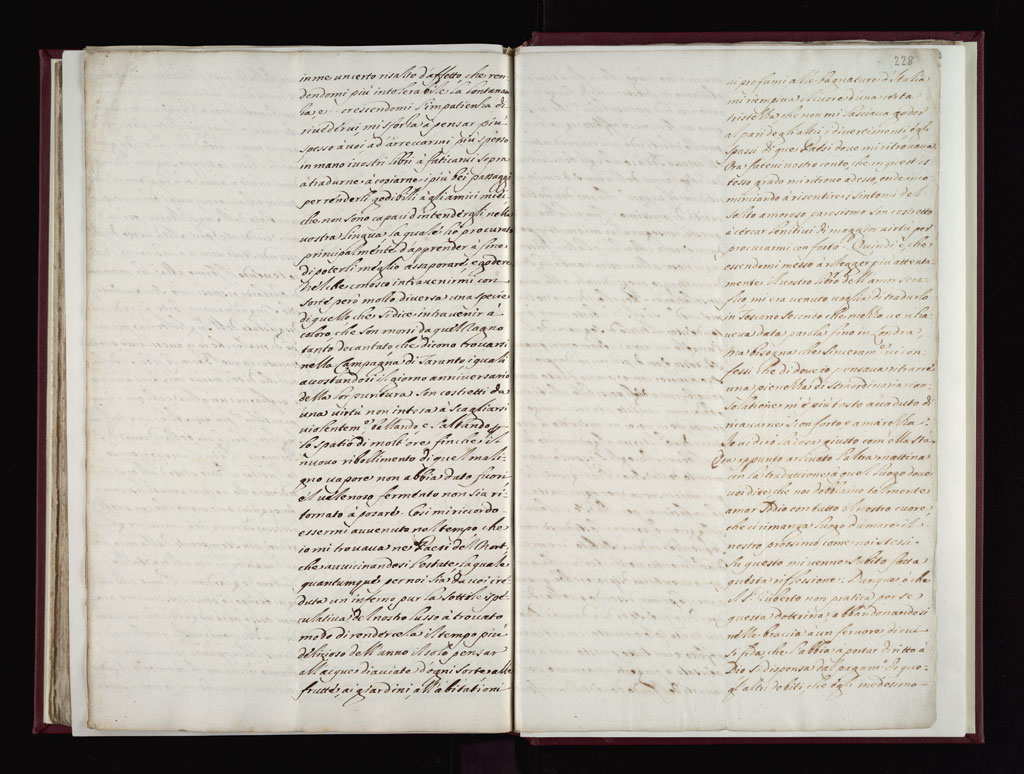 in me un certo risalto d'affetto che ren-
dendomi più intolerabile la lontanan-
za, e crescendomi l'impatienza di
rivedervi, mi sforza à pensar più
spesso à voi, ad arrecarmi più spesso
in mano i vostri libri à faticarvi sopra
à tradurne, à copiarne i più bei passaggi
per renderli godibili à gli amici miei
che non sono capaci d'intendergli nella
vostra lingua la quale hò procurato
principalmente d'apprender à fine
di poterli meglio assaporare, e godere
che conosco intravenirmi con
sorte però molto diversa una specie
di quello che si dice intravenir à
coloro, che son morsi da quel Ragno
tanto decantato che dicono trovarsi
nella Campagna di Taranto i quali
accostandosi il giorno anniversario
della lor puntura son costretti da
una virtù non intesa à scagliarsi
violentem.e ballando e saltando p
lo spatio di molt'ore finche il
nuovo ribollimento di quel mali-
gno vapore non abbia dato fuori
e'l valenoso fermento non sia ri-
tornato à posare. Così mi ricordo
essermi avvenuto nel tempo che
io mi trovava ne Paesi dell Nort,
che avvicinandosi l'estate, la quale
quantunque per noi sia da voi cre-
duta un inferno pur la sottile spe-
culativa del nostro lusso à trovato
modo di rendercela il tempo più
delizioso dell'anno il solo pensar
all'acque diacciate d'ogni sorte alle
frutte, ai giardini, all'abitationi
228
ai profumi alle bagnature d'Italia
mi riempiva il cuore d'una certa
tristezza che non mi lasciava goder
al pari degli altri i divertimenti, e gli
spassi di que Paesi dove mi ritrovava
Orar facevi vostro conto, che in quest'is
tesso grado mi ritrovo adesso, onde inco
minciando à risentire i sintomi del
solito amoroso parosismo son costretto
à cercar lenitivi di maggior virtù per
procurarmi conforto. Quindi è, che
essendomi messo à rilegger più attenta
mente il vostro libro dell'amor sera
fico mi era venuto voglia di tradurlo
in Toscano secondo che mezzo ve n'era
aveva data parola fino in Londra
ma bisogna che sinceram.e vi con
fessi che di dove io pensava ritrarre
una pienezza di straordinaria con
solatione m'è più tosto accaduto di
ricavarne sconforto e amarezza.
So vi dirò la cosa giusto com'ella sta
Era appunto arrivato l'altra mattina
con la traduzione à quel luogo dove
voi dite, che noi dobbiamo talmente
amar Iddio con tutto il nostro cuore,
che ci rimanga luogo d'amare il
nostro prossimo come noi stessi.
Su questo mi venne subito fatta
questa riflessione. Dunque ò che
il S. Ruberto non pratica per se
questa dottrina, e abbandonandosi
nelle braccia a un fervore di cui
si fida che l'abbia a portar dritto à
Dio si dispensa dal pagarni di que-
gl'altri debiti che egli medesimo